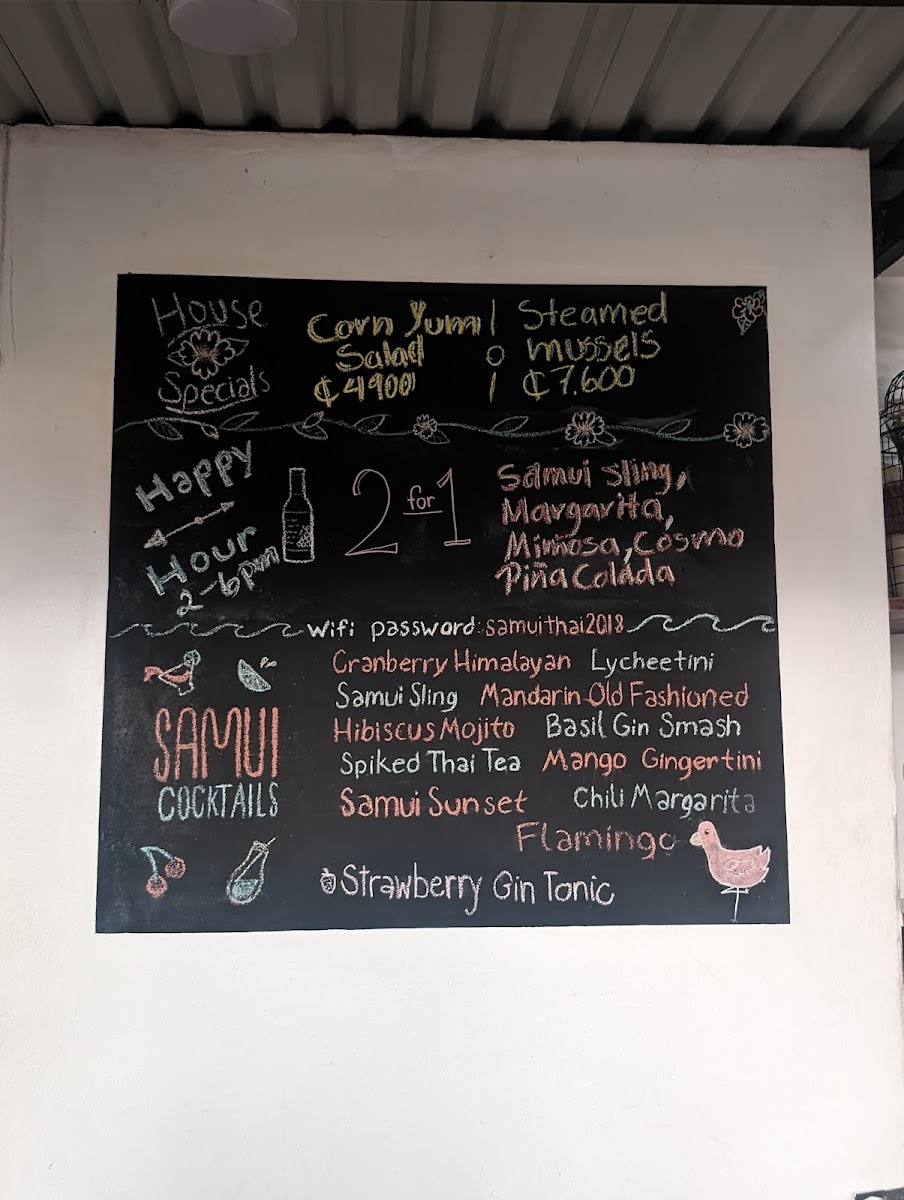 House
Specials
Corn Yum
Salad
₡4900
Steamed
mussels
₡7.600
Happy
Hour
2-6pm
2 for 1
Samui Sling,
Margarita,
Mimosa, Cosmo
Piña Colada
Wifi password: samuithai2018
SAMUI
COCKTAILS
Cranberry Himalayan Lycheetini
Samui Sling Mandarin Old Fashioned
Hibiscus Mojito Basil Gin Smash
Spiked Thai Tea Mango Gingertini
Samui Sunset Chili Margarita
Flamingo
Strawberry Gin Tonic